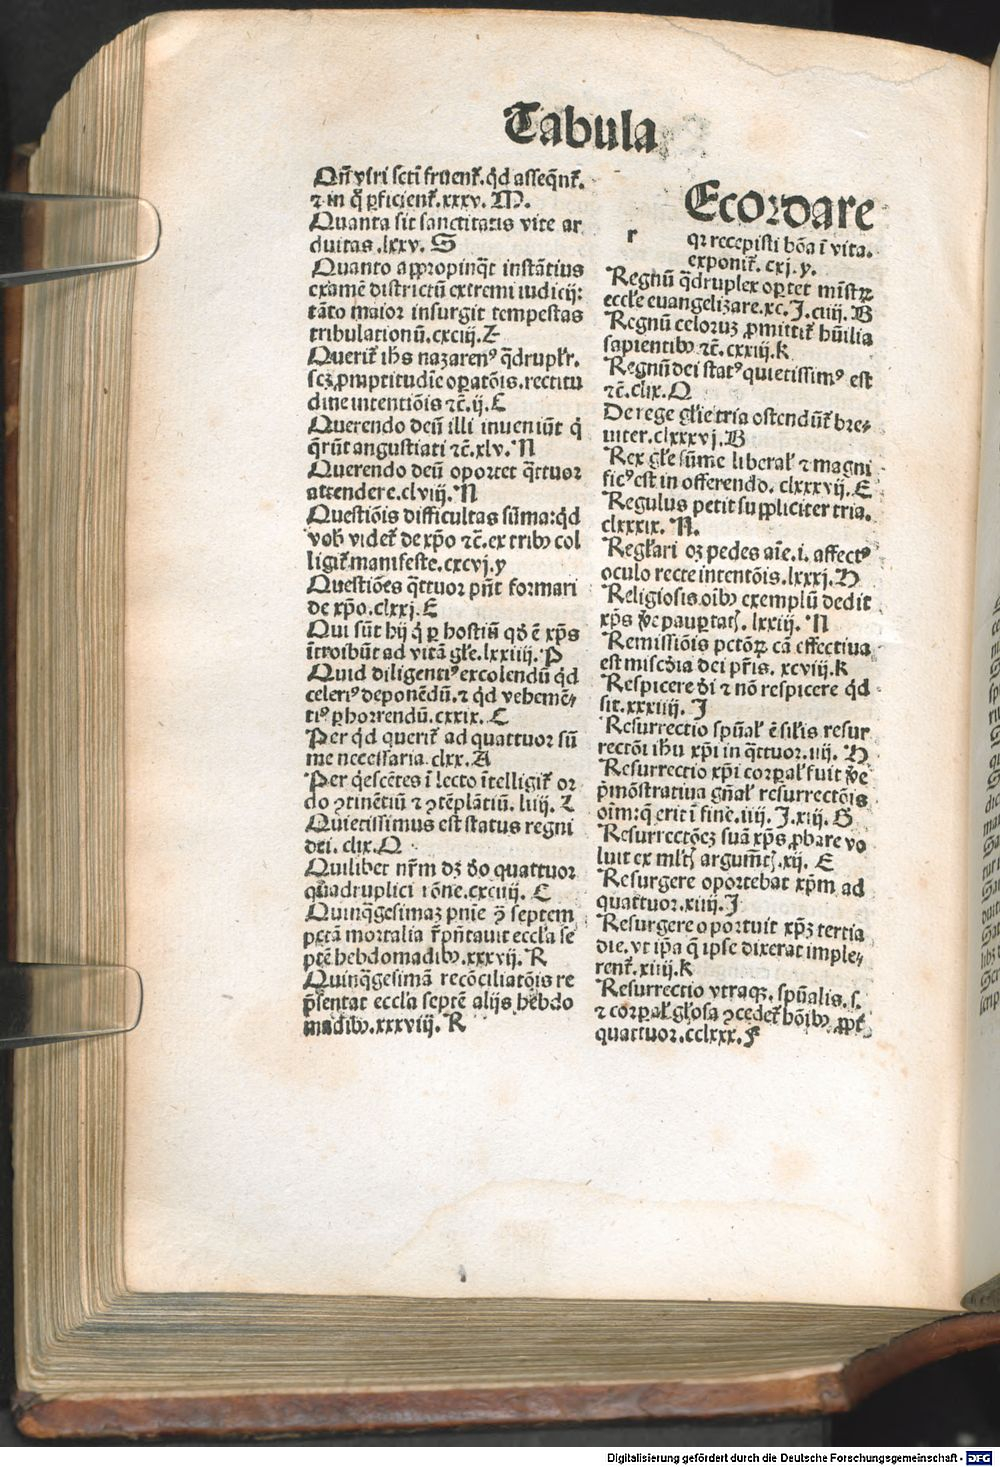 Tabula
Qn̄ viri sct̄i fruent᷑. qd̄ asseq̄nt᷑.
⁊ in q̊ ꝑficient᷑. xxxv. M.
Quanta sit sanctitatis vite ar
duitas .lxv. S
Quanto appropinq̄t instātius
examē districtū extremi iudicij:
tāto maior insurgit tempestas
tribulationū. cxciij. Z
Querit᷑ ih̄s nazarenꝰ q̄druplr̄.
scꝫ ꝓmptitudīe oꝑatōis. rectitu
dine intentiōis ⁊c̄. ij. C
Querendo deū illi inueniūt q̇
q̄rūt angustiati ⁊c̄. xlv. N
Querendo deū oportet q̄ttuor
attendere. clviij. N
Questiōis difficultas sūma: qd̄
voƀ videt᷑ de xp̄o ⁊c̄. ex tribꝰ col
ligit᷑ manifeste. cxcvj. y
Questiōes q̄ttuor pn̄t formari
de xp̄o. clxxj. E
Qui sūt hij q̇ ꝑ hostiū qđ ē xp̄s
ītroibūt ad vitā gl̄e. lxxiiij. P
Quid diligentiꝰ excolendū qd̄
celeriꝰ deponēdū. ⁊ qd̄ vehemē⸗
tiꝰ ꝑhorrendū. cxxix. C
Per qd̄ querit᷑ ad quattuor sū
me necessaria. clxx. A
Per q̇escētes ī lecto ītelligit᷑ or
do ꝯtinētiū ⁊ ꝯtēplātiū. liiij. Z
Quietissimus est status regni
dei. clix. O
Quilibet nr̄m dꝫ đo quattuor
quadruplici rōne. cxciiij. C
Quinq̄gesimaꝫ pnīe ꝓ septem
pctā mortalia r̄pn̄tauit eccl̄a se
ptē hebdomadibꝰ. xxxvij. R
Quinq̄gesimā recōciliatōis re
p̄sentat eccl̄a septē alijs hebdo
madibꝰ. xxxviij. R
r
Ecordare
qꝛ recepisti bōa ī vita.
exponit᷑. cxj. y.
Regnū q̄druplex oꝑtet mīstꝝ
eccl̄e euangelizare. xc. I. ciiij. B
Regnū celoruꝫ ꝓmittit᷑ hūilia
sapientibꝰ ⁊c̄. cxxiij. k
Regnū dei statꝰ quietissimꝰ est
⁊c̄. clix. O
De rege gl̄ie tria ostendūt᷑ bre⸗
uiter. clxxxvj. B
Rex gl̄e sūme liberał ⁊ magni
ficꝰ est in offerendo. clxxxvij. E
Regulus petit suppliciter tria.
clxxxix. N.
Regl̄ari oꝫ pedes aīe .i. affectꝰ
oculo recte intentōis. lxxxj. H
Religiosis oībꝰ exemplū dedit
xp̄s ꝟe pauꝑtatꝭ. lxxiij. N
Remissiōis pctōꝝ cā effectiua
est misc̄dia dei pr̄is. xcviij. k
Respicere đi ⁊ nō respicere qd̄
sit. xxxiiij. I
Resurrectio spūał ē sil̄is resur
rectōi ih̄u xp̄i in q̄ttuor. iiij. H
Resurrectio xp̄i corꝑał fuit ꝟe
p̄mōstratiua gn̄ał resurrectōis
oīm: q̄ erit ī fine. iiij. I. xiij. G
Resurrectōeꝫ suā xp̄s ꝓbare vo
luit ex ml̄tꝭ argum̄tꝭ. xij. E
Resurgere oportebat xp̄m ad
quattuor. xiiij. I
Resurgere oportuit xp̄ꝫ tertia
die. vt ip̄a q̄ ipse dixerat imple⸗
rent᷑. xiiij. k
Resurrectio vtraqꝫ. spūalis .s.
⁊ corꝑał gl̄osa ꝯcedet᷑ bōibꝰ ꝓpt̄
quattuor. cclxxx. F
Digitalisierung gefördert durch die Deutsche Forschungsgemeinschaft - DFG